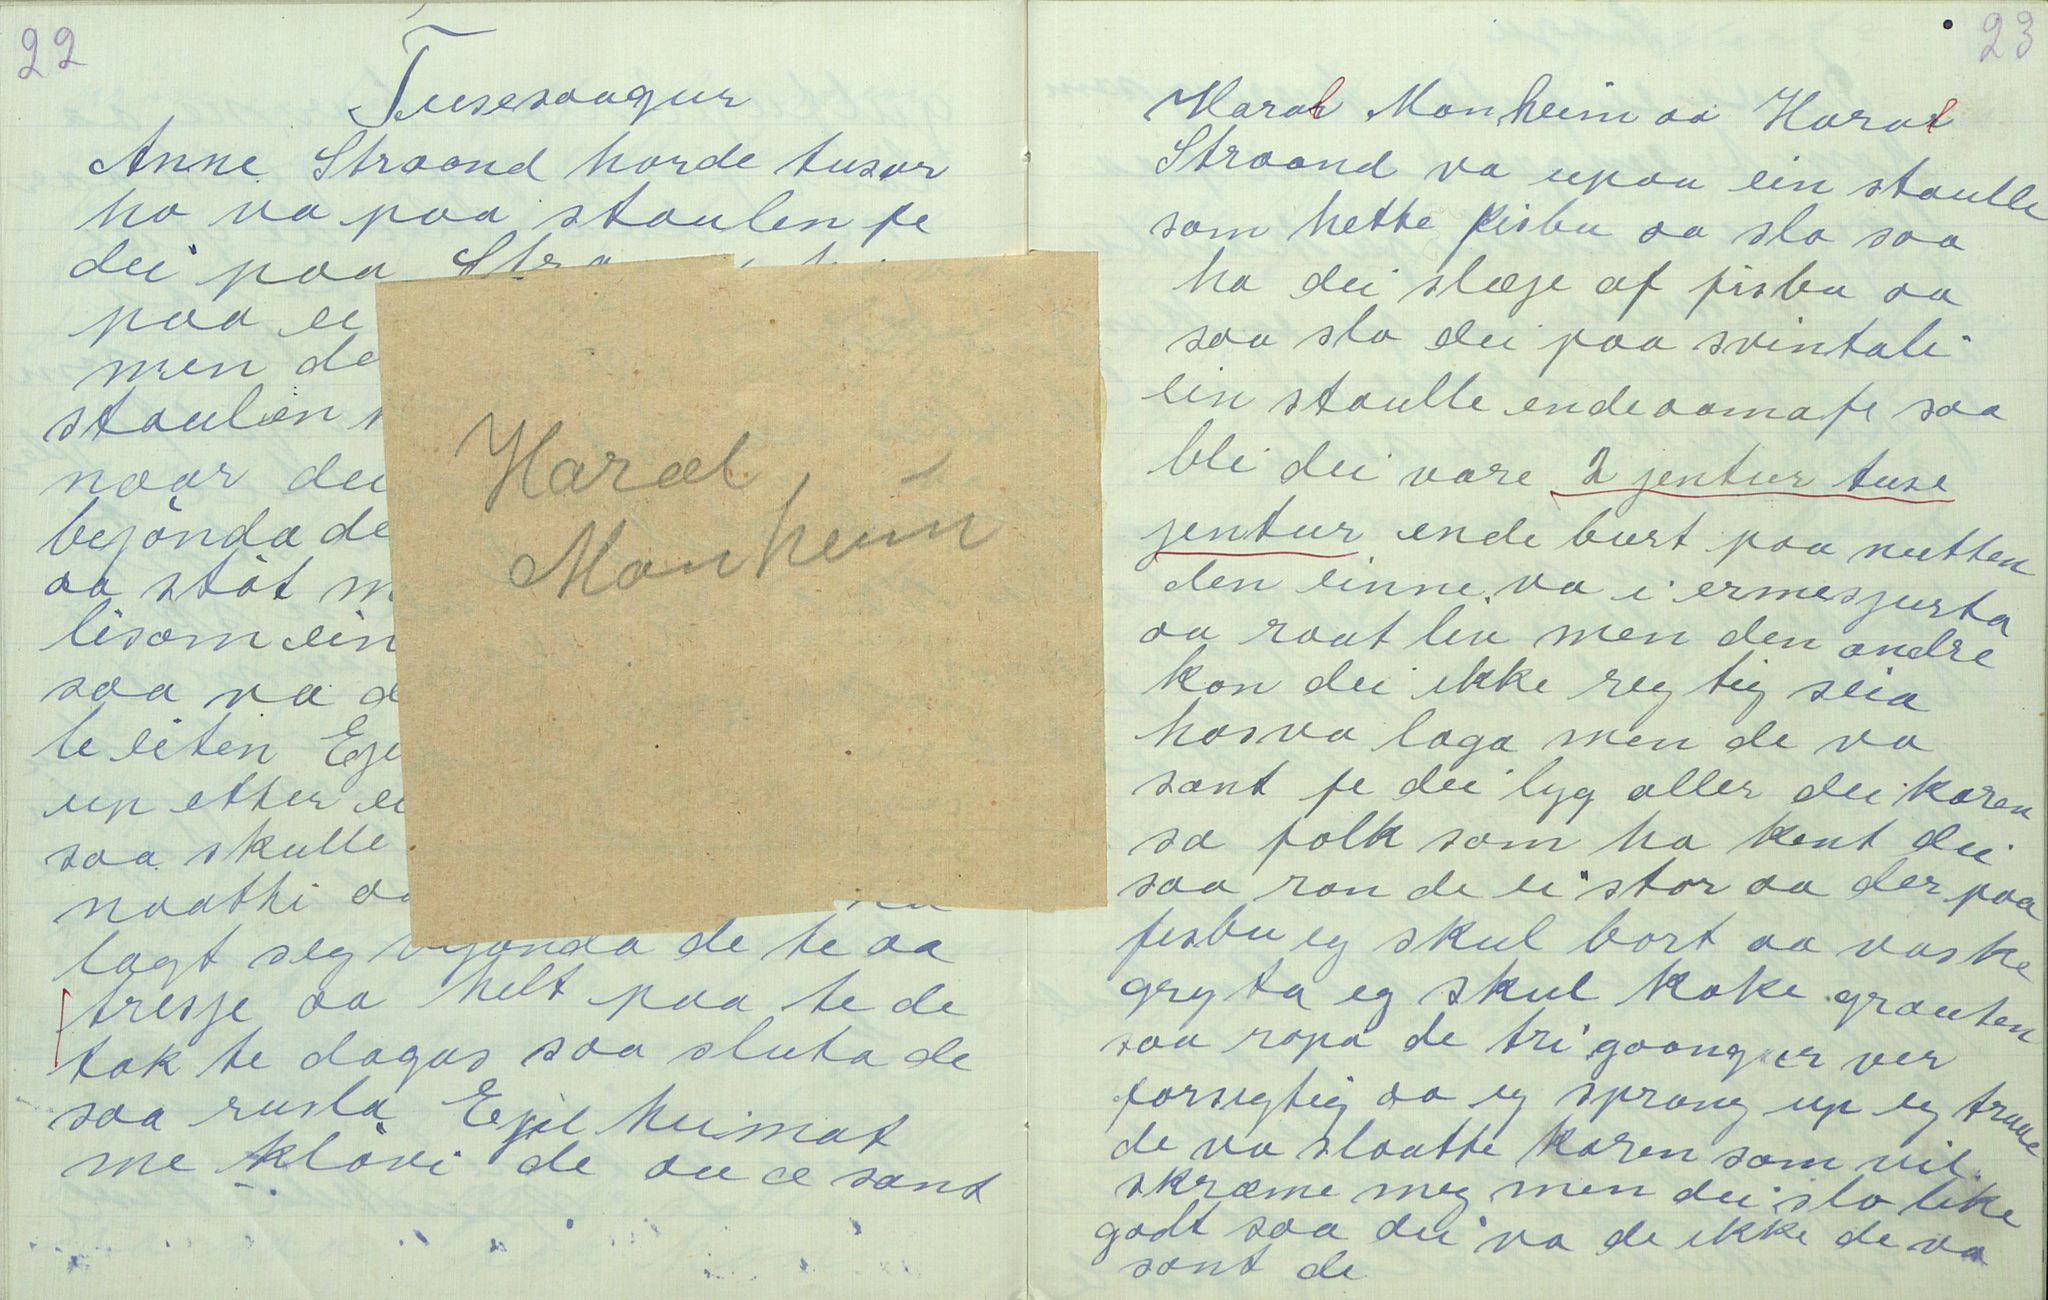 22
Tusesaagur
Anne Straand horde tusar
ho va paa staulen fe
dei paa Stra
paa ei
men de
staulen
naar dei
bejönda de
aa stöt m
lisom ein
saa va d
te liten Eje
up etter ei
saa skulle
naathi aa
lagt seg bejönda de te aa
tresje aa helt paa te de
tok te dagas saa sluta de
saa rusla Ejil heimat
me klövi de au æ sant
Haral
Monheim
23
Haral Monheim aa Haral
Straand va upaa ein staulle
som hette fisbu aa slo saa
ha dei slæje af fisbu aa
saa slo dei paa svintali
ein staulle endeaamafe saa
ble dei vare 2 jentur tuse
jentur ende burt paa nutten
den einne va i ermesjurta
aa raat liv men den andre
kon dei ikke regtig seia
hosva laga men de va
sant fe dei lyg aller dei karen
sa folk som ha kent dei
saa ran de ei stor aa der paa
fisbu eg skul bort aa vaske
gryta eg skul koke grauten
saa ropa de tri gaangur ver
forsigtig aa eg sprang up eg trude
de va slaatte karen som vil
skræme meg men dei slo like
godt saa dei va de ikke de va
sant de